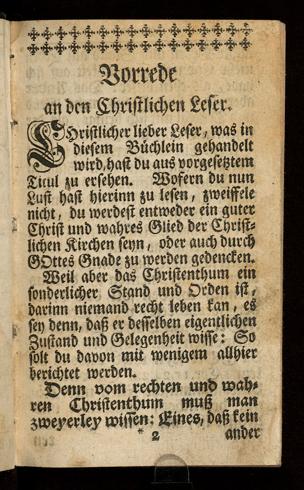 Vorrede
an den Christlichen Leser.
CHristlicher lieber Leser, was in
diesem Büchlein gehandelt
wird, hast du aus vorgesetztem
Titul zu ersehen. Wofern du nun
Lust hast hierinn zu lesen, zweiffele
nicht, du werdest entweder ein guter
Christ und wahres Glied der Christ-
lichen Kirchen seyn, oder auch durch
GOttes Gnade zu werden gedencken.
Weil aber das Christenthum ein
sonderlicher Stand und Orden ist,
darinn niemand recht leben kan, es
sey denn, daß er desselben eigentlichen
Zustand und Gelegenheit wisse: So
solt du davon mit wenigem allhier
berichtet werden.
Denn vom rechten und wah-
ren Christenthum muß man
zweyerley wissen: Eines, daß kein
* 2 ander